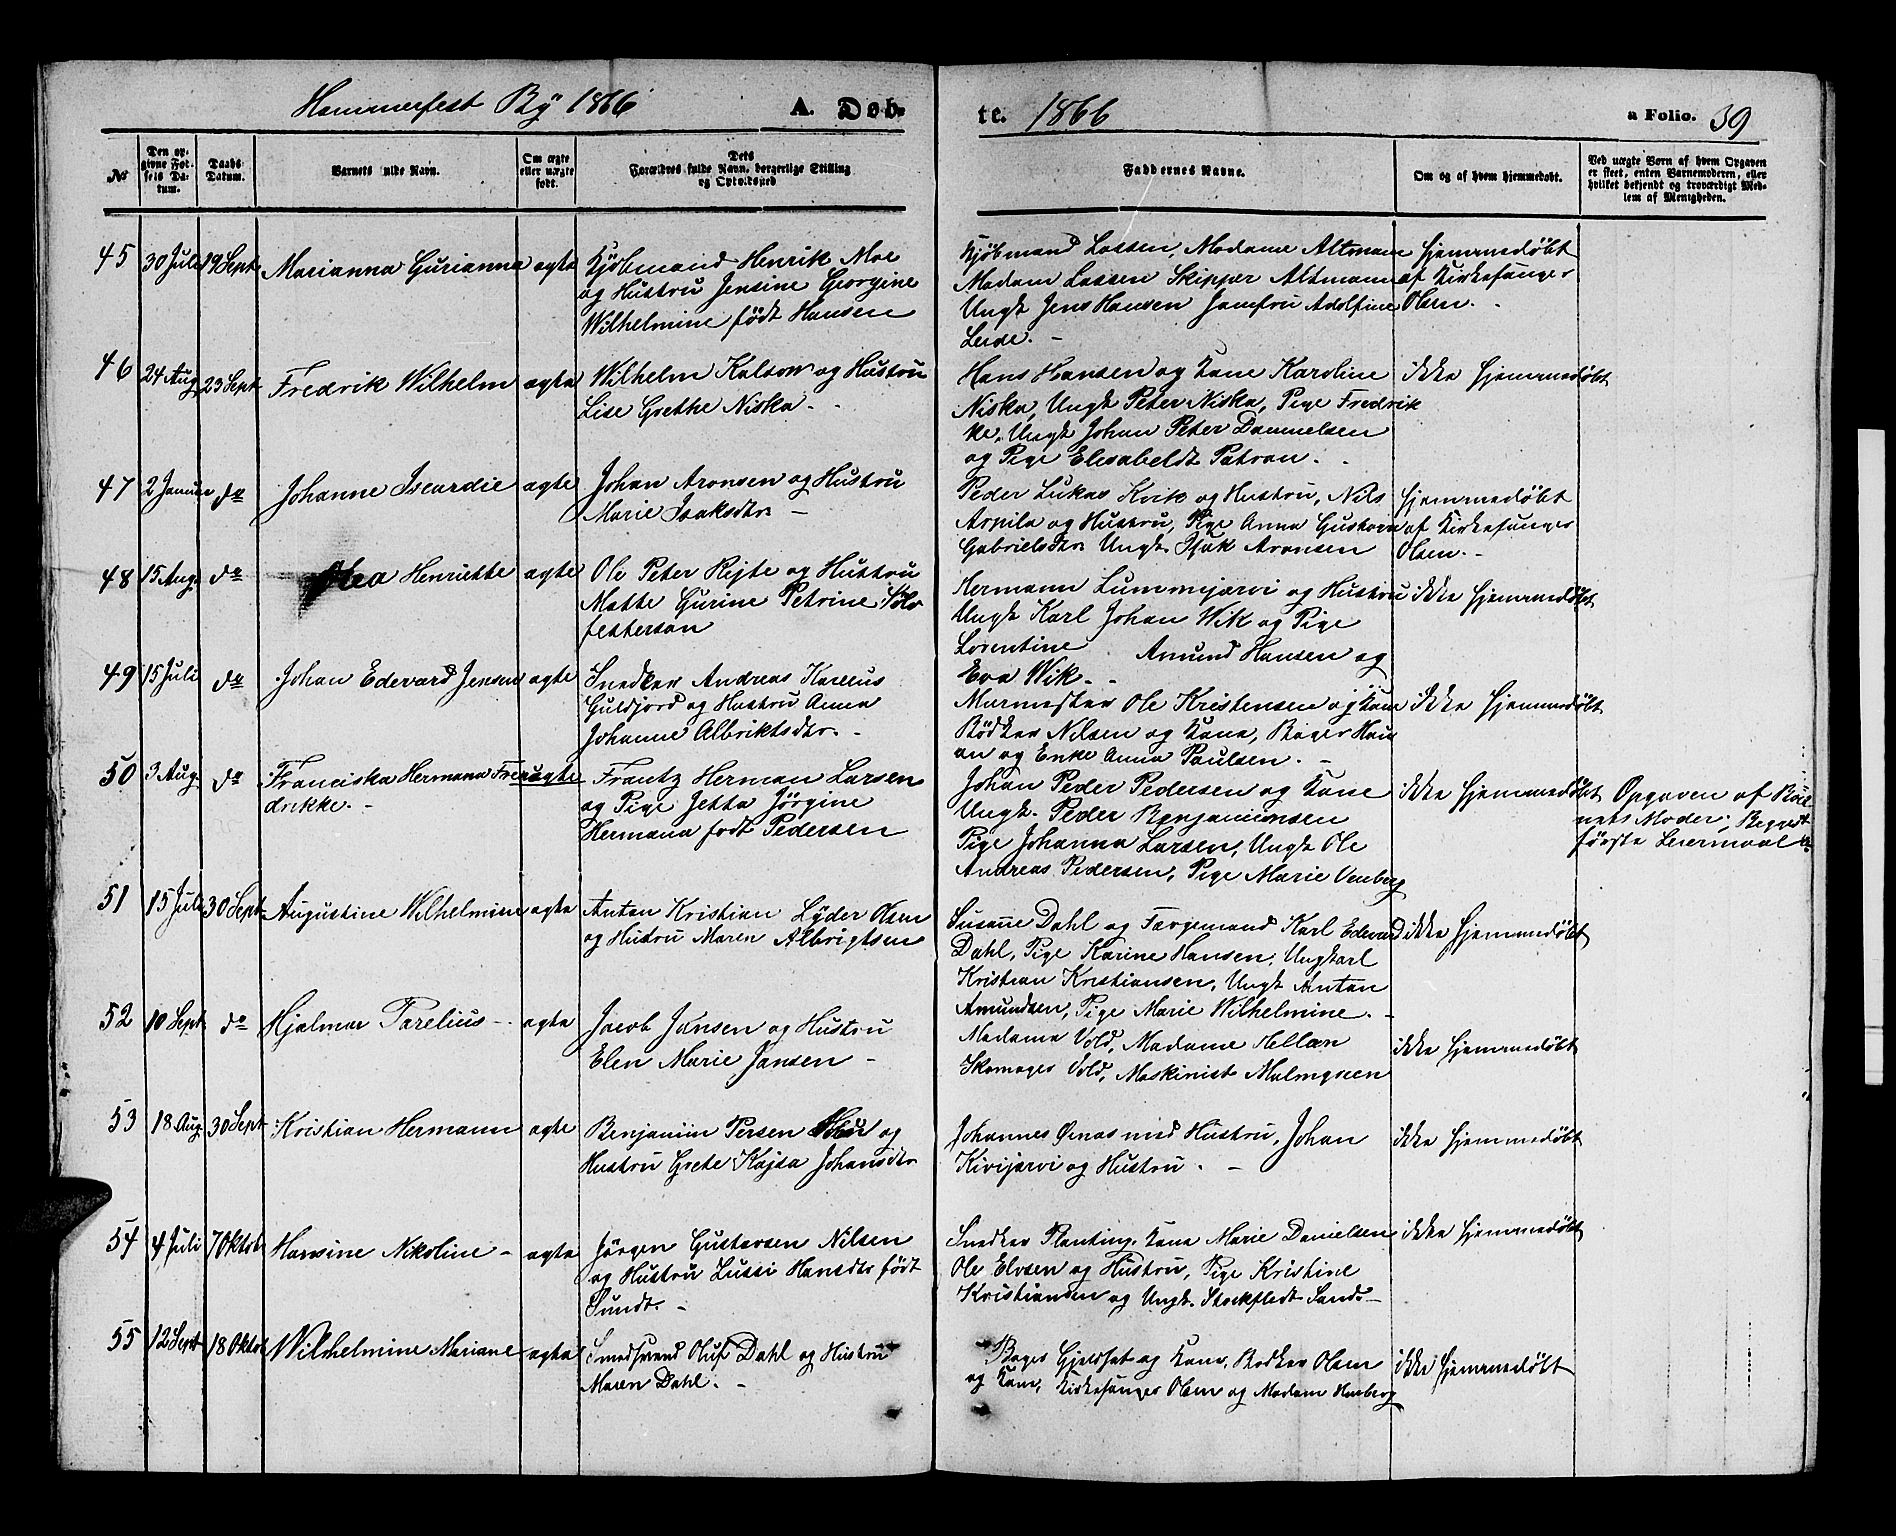 Hammerfest By 1866 A. Døb-
te. 1866 a Folio. 39
No
Den op-
givne Fød-
sels Da-
tum.
Daabs-
Datum.
Barnets fulde Navn.
Om ægte
eller uægte
født.
Dets
Forældres fulde Navn, borgerlige Stilling
og Opholdssted
Faddernes Navne.
Om og af hvem hjemmedøbt.
Ved uægte Børn af hvem Opgaven
er skeet, enten Barnemoderen, eller
hvilket bekjendt og troværdigt Med-
lem af Menigheden.
45 30 Juli 19 Sept Marianna Gurianna ægte
Kjøbmand Henrik Moe
og Hustru Jensine Georgine
Wilhelmine født Hansen
Kjøbmand Lassen, Madame Altmann
Madam Lassen Skipper Altmann
Ungk Jens Hansen Jomfru Adolfine
Leide. -
hjemmedøbt
af Kirkesanger
Olsen. -
46 24 Aug 23 Sept Fredrik Wilhelm ægte
Wilhelm Kalson og Hustru
Lise Grethe Niska. -
Hans Hansen og Kone Karoline
Niska, Ungk Peter Niska, Pige Fredrik
ke, Ungk Johan Peter Dannielsen
og Pige Elisabeldt Patron. -
ikke hjemmedøbt
47 2 Januar do Johanne Iscardie ægte
Johan Aronsen og Hustru
Marie Isaksdtr -
Peder Lukas Kvik og Hustru, Nils
Arpila og Hustru, Pige Anna Gustava
Gabrielsdtr Ungk. Isak Aronsen
hjemmedøbt
af Kirkesanger
Olsen. -
48 15 Aug. do Olea Henriette ægte
Ole Peter Rejte og Hustru
Mette Gurine Petrine Sølv
festersan
Hermann Lummijarvi og Hustru
Ungk Karl Johan Wik og Pige
Lorentine Amund Hansen og
Eva Wik. -
ikke hjemmedøbt
49 15 Juli do Johan Edevard Jensen ægte
Snedker Andreas Karelius
Guldjord og Hustru Anna
Johanne Albriktsdtr. -
Murmester Ole Kristensen og Kone
Bødker Nilsen og Kone, Bager Han
an og Enke Anna Paulsen. -
ikke hjemmedøbt
50 3 Aug. do Franciska Hermana Fre uægte
drikke. -
Frantz Herman Larsen
og Pige Jetta Jörgine
Hermana født Pedersen
Johan Peder Pedersen og Kone
Ungk. Peder Benjaminsen
Pige Johanna Larsen, Ungk Ole
Andreas Pedersen, Pige Marie Venberg
ikke hjemmedøbt
Opgaven af Bar
nets Moder; Begges
første Leiermaal
51 15 Juli 30 Sept Augustine Wilhelmine ægte
Anton Kristian Lyder Olsen
og Hustru Maren Albrigtsen
Susane Dahl og Færgemand Karl Edevard
Dahl, Pige Karine Hansen, Ungkarl
Kristian Kristiansen, Ungk Anton
Amundsen, Pige Marie Wilhelmine. -
ikke hjemmedøbt
52 10 Sept do Hjalmar Torelius - ægte
Jacob Jansen og Hustru
Elen Marie Jansen -
Madame Vold, Madame Hellan
Skomager Vold, Maskinist Malmgreen
ikke hjemmedøbt
53 18 Aug. 30 Sept Kristian Hermann ægte
Benjamin Persen og
Hustru Grete Kajsa Johansdtr
Johannes Ornas med Hustru, Johan
Kivijarvi og Hustru. -
ikke hjemmedøbt
54 4 Juli 7 Oktob Hansine Nikoline - ægte
Jørgen Gustavsen Nilsen
og Hustru Lussi Hansdtr født
Sundt. -
Snedker Planting, Kone Marie Danielsen
Ole Elvsen og Hustru, Pige Kristine
Kristiansen og Ungk. Stockfledt Sand -
ikke hjemmedøbt
55 12 Sept 18 Oktob Wilhelmine Mariane ægte
Smedsvend Oluf Dahl og Hustru
Maren Dahl. -
Bager Gjeldset og Kone, Bødker Olsen
og Kone, Kirkesanger Olsen og Madam Hauberg
ikke hjemmedøbt